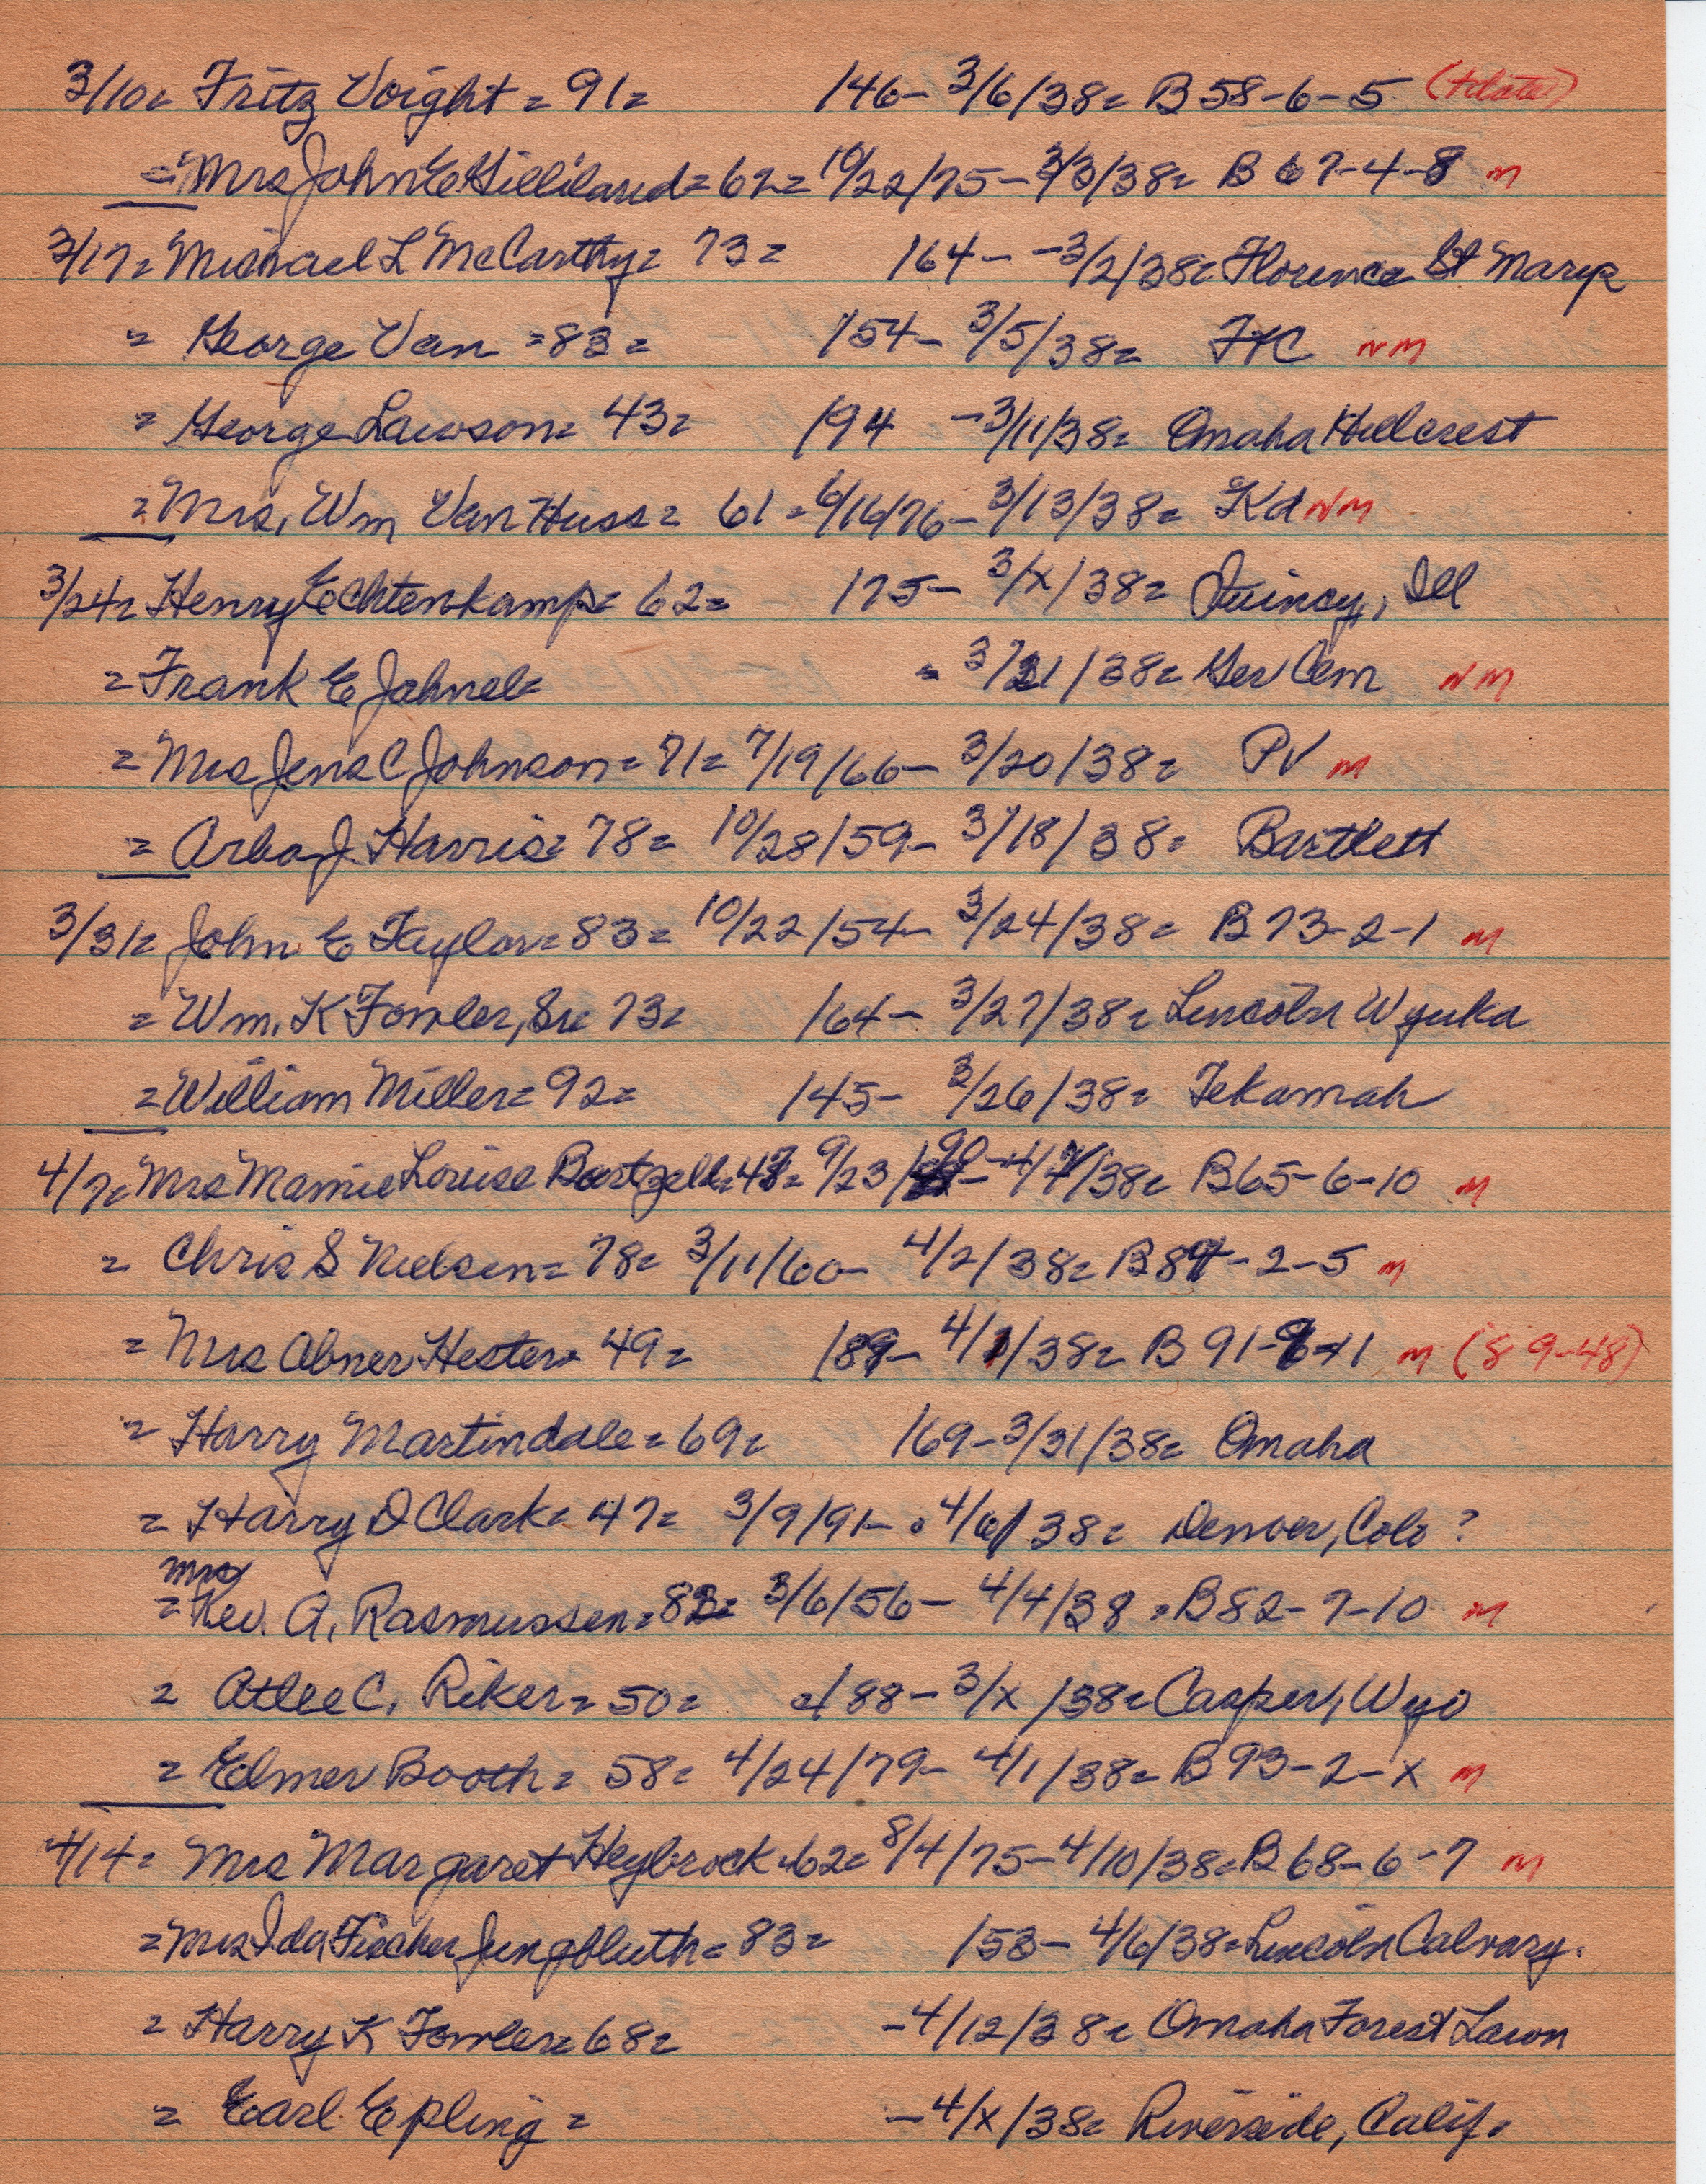 3/10= Fritz Voight = 91= /46- 3/6/38= B 58-6-5
= Mrs John E Gilliland = 62= 10/22/75- 3/3/38= B 67-4-8 m
3/17= Michael L McCarthy= 73= /64- -3/2/38= Florence St Marys
= George Van =83= /54- 3/5/38= FtC NM
= George Lawson= 43= /94 -3/11/38= Omaha Hillcrest
= Mrs. Wm Van Huss= 61 =6/16/76- 3/13/38= Kd NM
3/24= Henry Echtenkamp= 62= /75- 3/x/38= Quincy, Ill
= Frank E Jahnel= = 3/21/38= Ger Cem NM
= Mrs Jens C Johnson= 71= 7/19/66- 3/20/38= PV m
= Arba J. Harris= 78= 10/28/59- 3/18/38= Bartlett
3/31= John E Taylor= 83= 10/22/54- 3/24/38= B 73-2-1 m
= Wm. K Fowler, Sr= 73= /64- 3/27/38= Lincoln Wyuka
= William Miller= 92= /45- 3/26/38= Tekamah
4/7= Mrs Mamie Louise Bortzell= 47= 9/23/90-4/7/38= B65-6-10 m
= Chris S Nielsen= 78= 3/11/60- 4/2/38= B 84-2-5 m
= Mrs Abner Hester= 49= /89- 4/1/38= B 91-6-11 m (89-48)
= Harry Martindale= 69= /69-3/31/38= Omaha
= Harry D Clark= 47= 3/9/91- 4/6/38= Denver, Colo ?
Mrs
= Rev. A. Rasmussen= 82= 3/6/56- 4/4/38 = B 82-7-10 m
= Atlee C. Riker= 50= /88- 3/x/38= Casper, Wyo
= Elmer Booth= 58= 4/24/79- 4/1/38= B 93-2-x m
4/14= Mrs Margaret Heybrock =62= 8/4/75-4/10/38= B 68-6-7 m
= Mrs Ida Fischer Jungbluth= 83= /53- 4/6/38= Lincoln Calvary.
= Harry K Fowler= 68= -4/12/38= Omaha Forest Lawn
= Earl Epling = -4/x/38= Riverside, Calif.